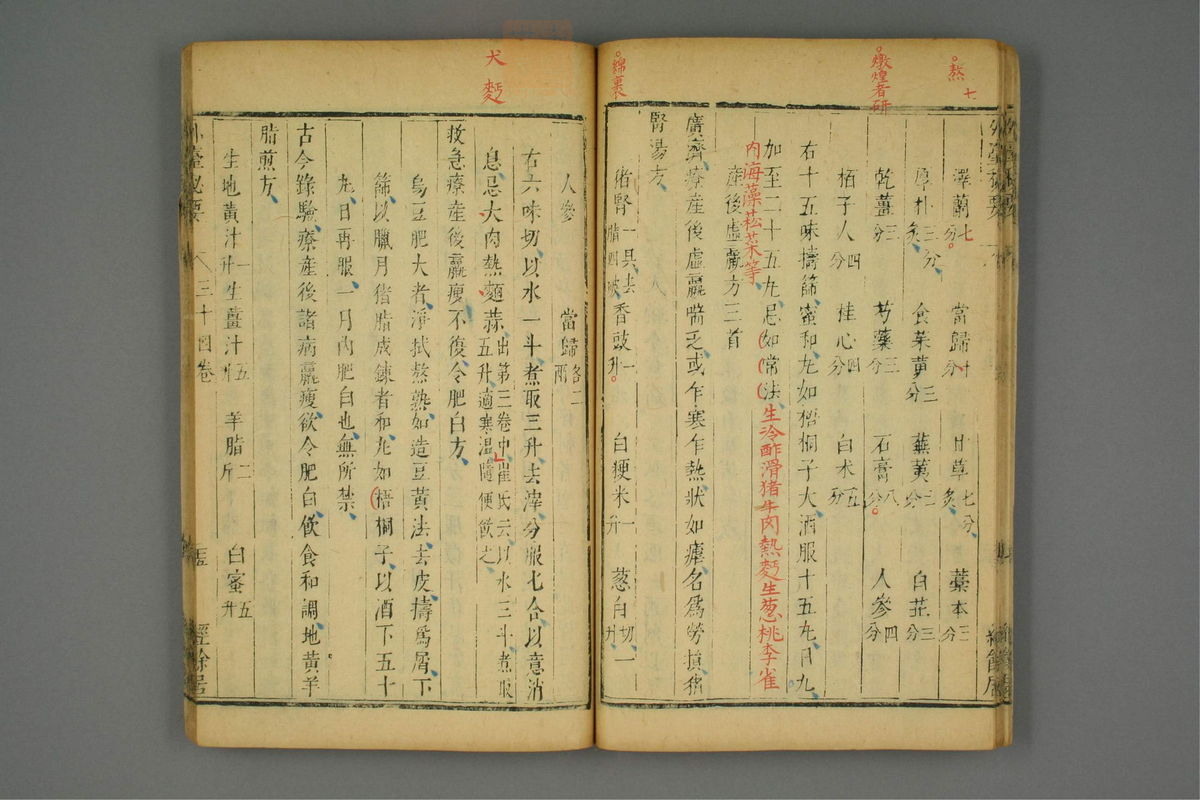 熬 七
燉煌者研
綿裹
外臺祕要
澤蘭七分 當歸十分 甘草七分炙 藁本三分
厚朴三分炙 食茱萸三分 蕪荑三分 白芷三分
乾薑三分 芎藭三分 石膏八分 人參四分
栢子人四分 桂心四分 白术五分
右十五味擣篩蜜和丸如梧桐子大酒服十五丸日九
加至二十五丸忌如常法生冷酢滑猪牛肉熱麪生葱桃李雀
內海藻菘菜等
產後虛羸方三首
廣濟療產後虛羸喘乏或乍寒乍熱狀如瘧名為勞損猪
腎湯方
猪腎一具去脂四破 香豉一升 白粳米一升 葱白切一升
經餘居
犬 麪
人參 當歸各二兩
右六味切以水一斗煮取三升去滓分服七合以意消
息忌大肉熱麵蒜出第三卷中崔氏云以水三斗煮取五升適寒温隨便飲之
救急療產後羸瘦不復令肥白方
烏豆肥大者淨拭熬熟如造豆黃法去皮擣為屑下
篩以臘月猪脂成鍊者和丸如梧桐子以酒下五十
丸日再服一月內肥白也無所禁
古今錄驗療產後諸病羸瘦欲令肥白飲食和調地黃羊
脂煎方
生地黃汁一升 生薑汁五升 羊脂二斤 白蜜五升
外臺祕要 三十四卷 五 經餘居